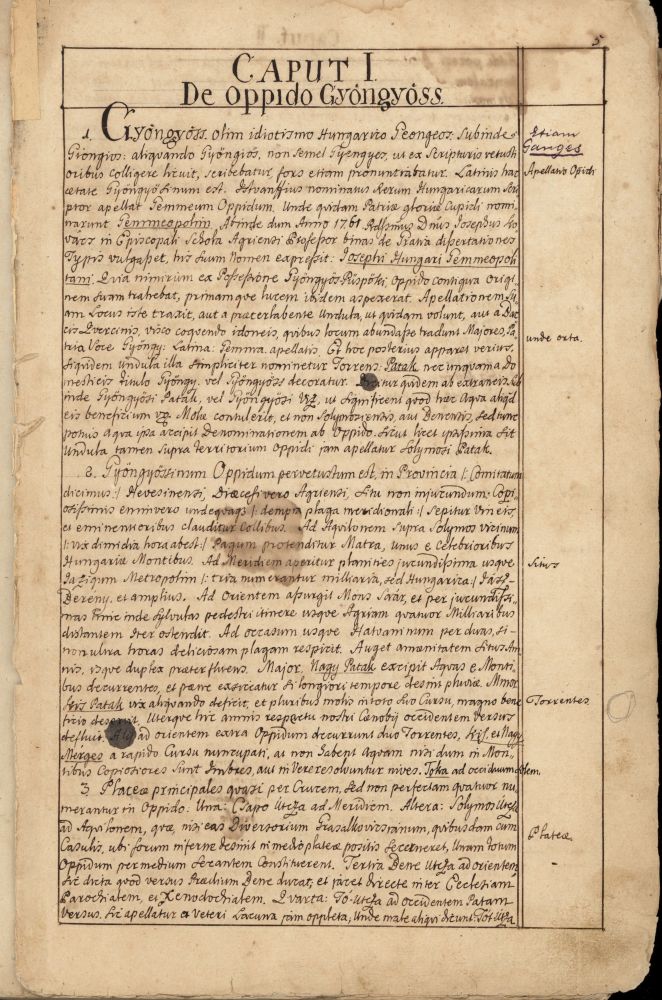 5
CAPUT I.
De Oppido Gyöngyöss.
1. Gyöngyöss. olim idiotismo Hungarico Geongeos. Subinde
Giongios: aliquando Gyöngiös, non semel Gyengyes, ut ex Scripturis vetusti
oribus colligere licuit, scribebatur, fors etiam pronuntiabatur. Latinis hac
aetate Gyöngyösinum est. Istvanffius nominatus Rerum Hungaricarum Scri
ptor apellat Gemmeum Oppidum. Unde quidam Patriae gloriae Cupidi nomi
narunt Gemmeopolim. Abinde dum Anno 1761. Josephus Ko
vacs in Episcopali Schola Agriensi Professor binas de dissertationes
Typis vulgasset, his suum Nomen expressit: Josephi Hungari Gemmeopoli
tani. Quia nimirum ex Possessione Gyöngyös Püspöki, Oppido contigua origi
nem suam trahebat, primamque lucem ibidem aspexerat. Apellationem su
am Locus iste traxit, aut a praeterlabente Undula, ut quidam volunt, aut a Bac
cis Quercinis, visco coquendo idoneis, quibus locum abundasse tradunt Majores, Pa
tria Voce Gyöngy: Latina: Gemma apellatis. Et hoc posterius apparet verius.
Siquidem undula illa simpliciter nominetur Torrens: Patak nec unquam a do
mesticis titulo Gyöngy, vel Gyöngyöss decoratur. Dicitur quidem ab extraneis sub
inde Gyöngyösi Patak, vel Gyöngyösi Viz, ut significent quod haec Aqua aliqd
eis beneficium Molae contulerit, et non Solymosiensis, aut Benensis, sed tunc
potius aqua ipsa accipit Denominationem ab Oppido. Sicut licet ipsissima sit
Undula, tamen supra territorium Oppidi jam apellatur Solymosi Patak.
2. Gyöngyössinum Oppidum pervetustum est, in Provincia /: Comitatum
dicimus :/ Hevesinensi, Dioecesi vero Agriensi, situ non injucundum: Copi
osissimis enimvero undequaque /: dempta plaga meridionali :/ Sepitur Vineis,
et eminentioribus clauditur Collibus. Ad Aquilonem supra Solymos vicinum
/: vix dimidia hora abest :/ Pagum protenditur Matra, unus e Celebrioribus
Hungariae Montibus. Ad Meridiem aperitur planities jucundissima usque
Jazigum Metropolim /: tria numerantur milliaria, sed Hungarica :/ Jász-
Berény, et amplius. Ad Orientem assurgit Mons Saár, et per jucundissi
mas hinc inde sylvulas pedestri itinere usque Agriam quatuor Milliaribus
distantem Iter ostendit. Ad occasum usque Hatvaninum per duas, si-
militer horas deliciosam plagam respicit. Auget amaenitatem situs Am
nis, isque duplex praeterfluens. Major, Nagy Patak excipit Aquas e Monti
bus decurrentes, et paene exsiccatur si longiori tempore desint pluviae. Minor
Kis Patak vix aliquando deficit, et pluribus molis in toto suo Cursu, magno bene
ficio deservit. Uterque hic amnis respectu nostri Caenobij occidentem versus
defluit. Alij ad orientem extra Oppidum decurrunt duo Torrentes, Kis, et Nagy
Mérges a rapido Cursu nuncupati, at non habent Aquam nisi dum in Mon-
tibus Copiosiores sunt Imbres, aut in Vere resolvuntur nives. Toka ad occiduum
3. Plateae principales quasi per Crucem, sed non perfectam quatuor nu
merantur in Oppido: Una: Csapo Utcza ad Meridiem. Altera: Solymos Utcza
ad Aquilonem, quae, nisi eas Diversorium Grasalkovicsianum, quibusdam cum
Casulis, ubi forum inferne desinit in medio plateae positis secerneret, Unam totum
Oppidum per medium secantem Constituerent. Tertia Bene Utcza ad orientem
sic dicta quod versus Praedium Bene ducat, et jacet directe inter Ecclesiam
Parochialem, et Xenodochialem. Quarta: To-utcza ad occidentem Patam
versus. Sic apellatur a Veteri Lacuna jam oppleta, Unde male aliqui dicunt: Tót-Utcza
Etiam
Ganges
Apellatio Opidi
unde orta.
Situs
Torrentes.
Plateae